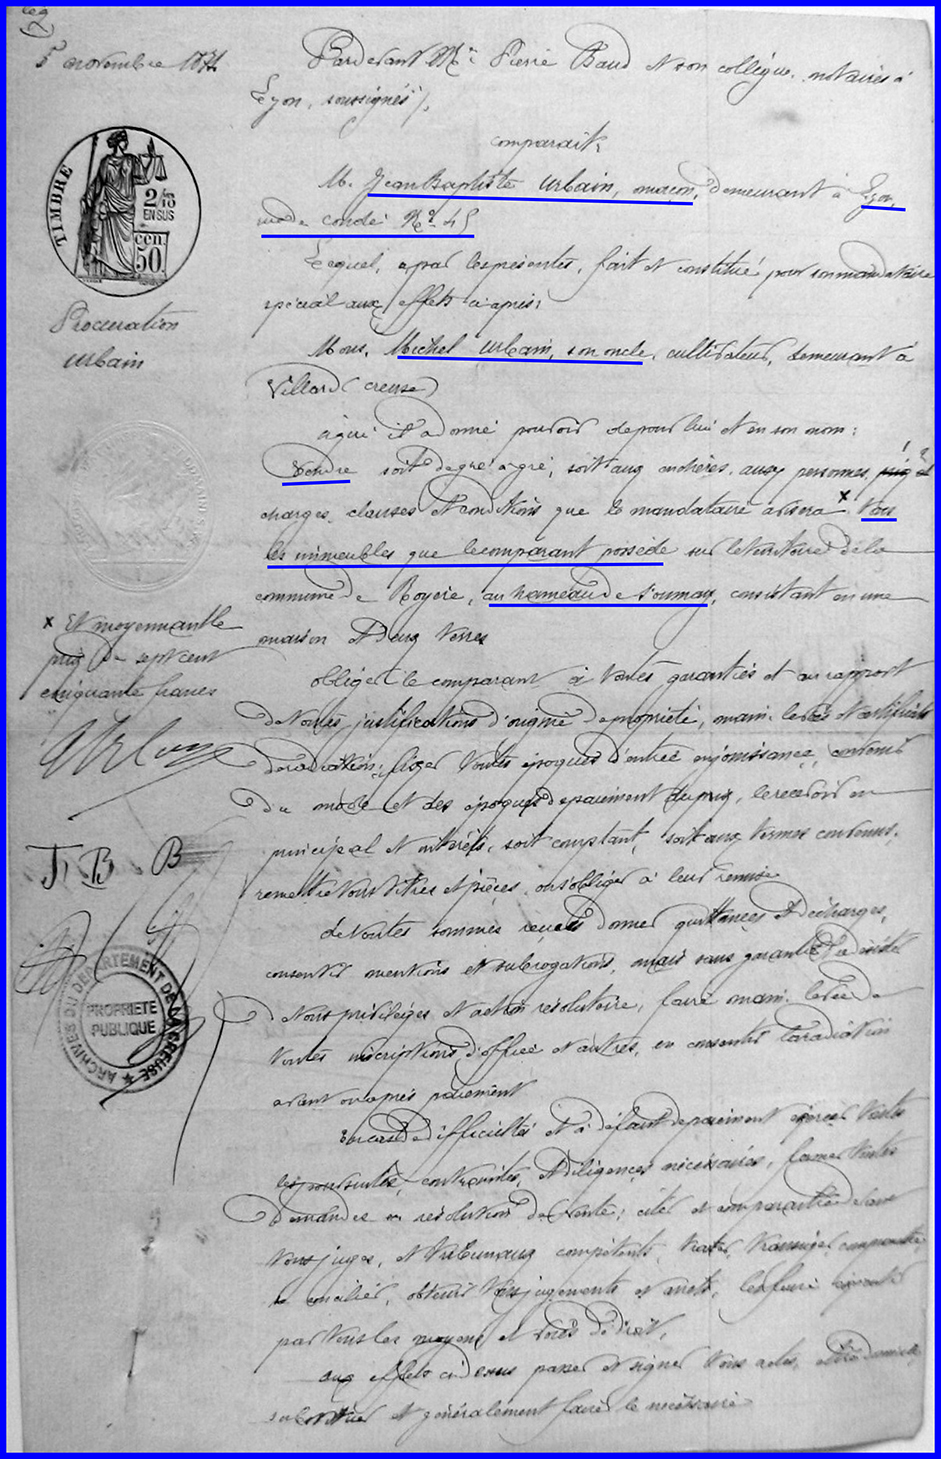 5 novembre 1871
Pardevant Me Pierre Baud et son collègue, notaires à
Lyon, soussignés,
comparait,
M. Jean Baptiste Urbain, maçon, demeurant à Lyon,
rue de Condé No 45
Lequel, a par les présentes, fait et constitué pour son mandataire
spécial aux effets ci après:
Mons. Michel Urbain, son oncle, cultivateur, demeurant à
Villard (Creuse)
à qui il a donné pouvoir de pour lui et en son nom:
Vendre soit de gré à gré, soit aux enchères, aux personnes, prix et
charges, clauses et conditions que le mandataire avisera x tous
les immeubles que le comparant possède sur le territoire de la
commune de Royère, au hameau de Soumay, consistant en une
maison et deux terres
obliger le comparant à toutes garanties et au rapport
de toutes justifications d'origine de propriété, main-levées et certificats
de radiation; fixer toutes époques d'entrée en jouissance, convenir
du mode et des époques de paiement du prix, le recevoir en
principal et intérêts, soit comptant, soit aux termes convenus,
remettre tous titres et pièces, ou s'obliger à leur remise
de toutes sommes reçues donner quittances et décharges,
consentir mentions et subrogations, mais sans garantie, se désister
de tous privilèges et action résolutoire, faire main-levée de
toutes inscriptions d'office et autres, en consentir la radiation
avant ou après paiement
en cas de difficultés et à défaut de paiement exercer toutes
les poursuites, contraintes, et diligences nécessaires, former toutes
demandes en résolution de vente; citer et comparaitre devant
tous juges, et tribunaux compétents, traiter, transiger, compromettre
se concilier, obtenir tous jugements et arrêts, les faire exécuter
par tous les moyens et voies de droit,
aux effets ci dessus passer et signer tous actes, élire domicile
substituer et généralement faire le nécessaire
TIMBRE
2/10
EN SUS
cen.
50.
Procuration
Urbain
x Et moyennant le
prix de sept cent
cinquante francs
Urbain
J. B. B
ARCHIVES DU DÉPARTEMENT DE LA CREUSE
PROPRIÉTÉ
PUBLIQUE